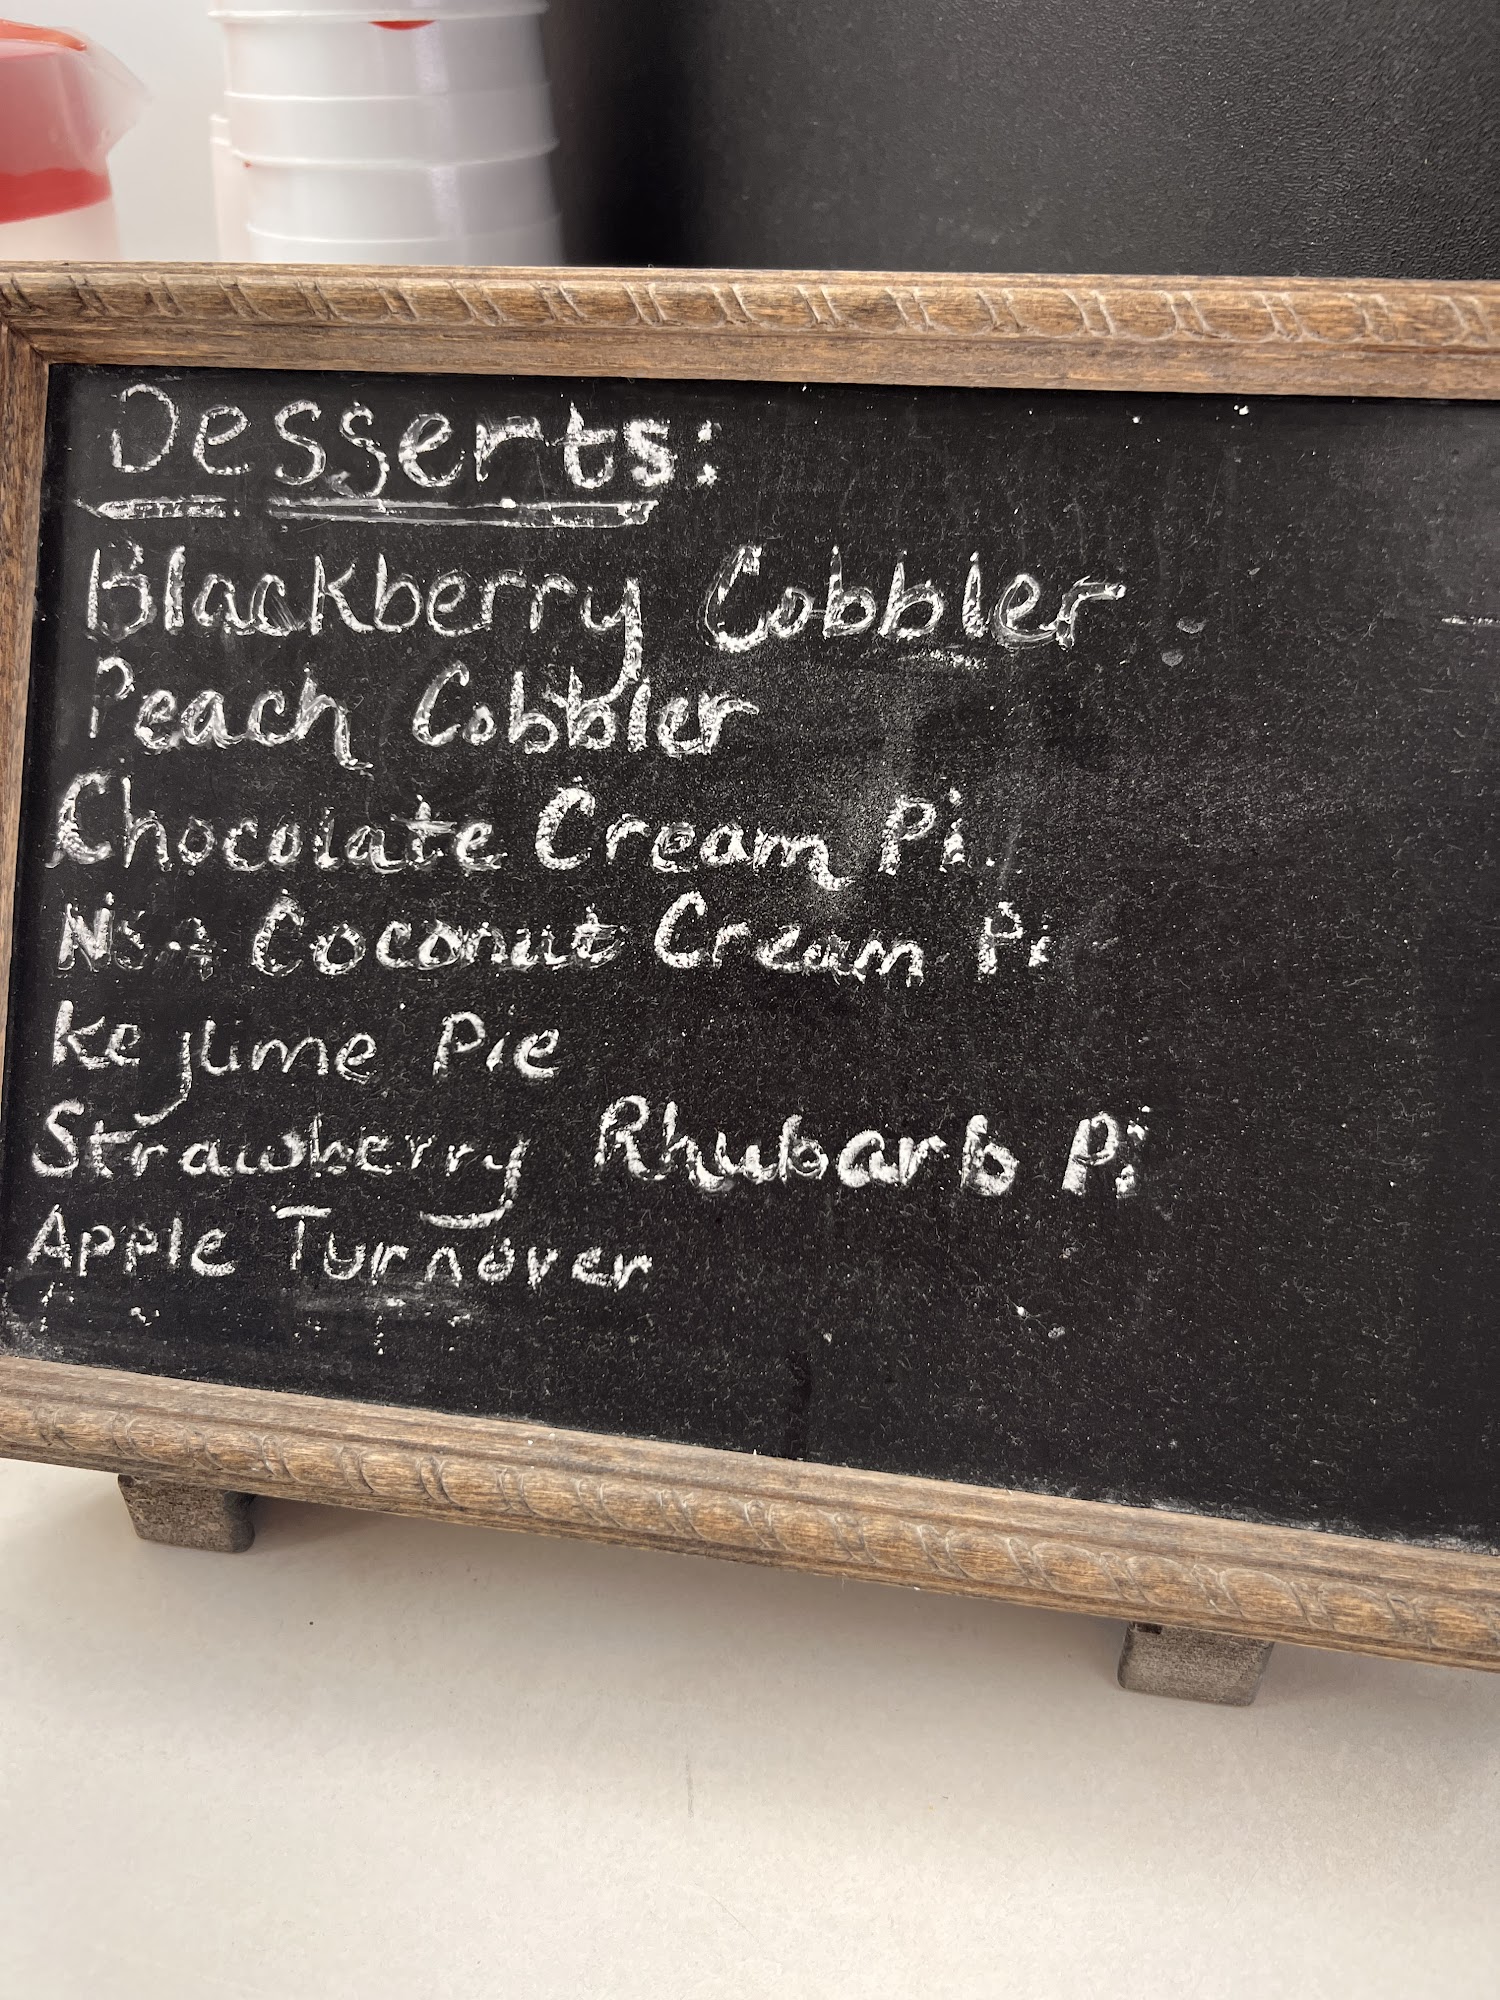 Desserts:
Blackberry Cobbler
Peach Cobbler
Chocolate Cream Pi
NSA Coconut Cream Pi
Key lime Pie
Strawberry Rhubarb Pi
Apple Turnover